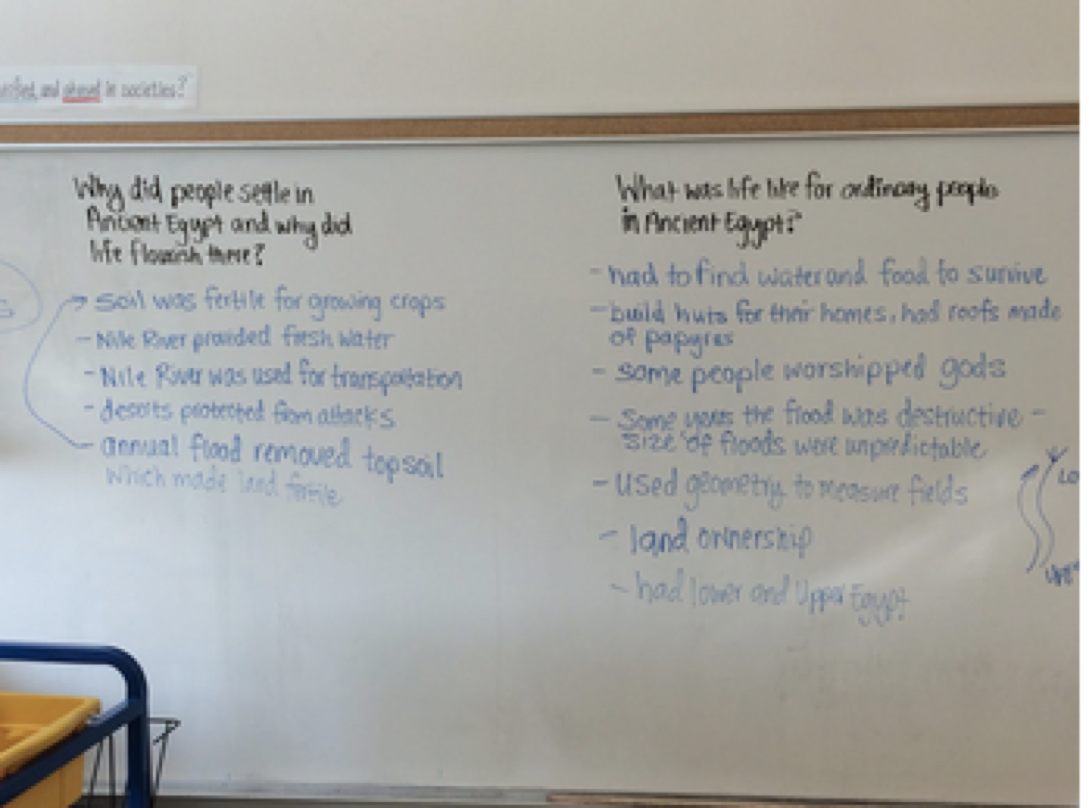 and shared in societies?
Why did people settle in
Ancient Egypt and why did
life flourish there?
soil was fertile for growing crops
- Nile River provided fresh water
- Nile River was used for transportation
- deserts protected from attacks
annual flood removed topsoil
which made land fertile
What was life like for ordinary people
in Ancient Egypt?
- had to find water and food to survive
- build huts for their homes, had roofs made
of papyrus
- some people worshipped gods
- Some years the flood was destructive -
size of floods were unpredictable
- used geometry to measure fields
- land ownership
- had lower and Upper Egypt